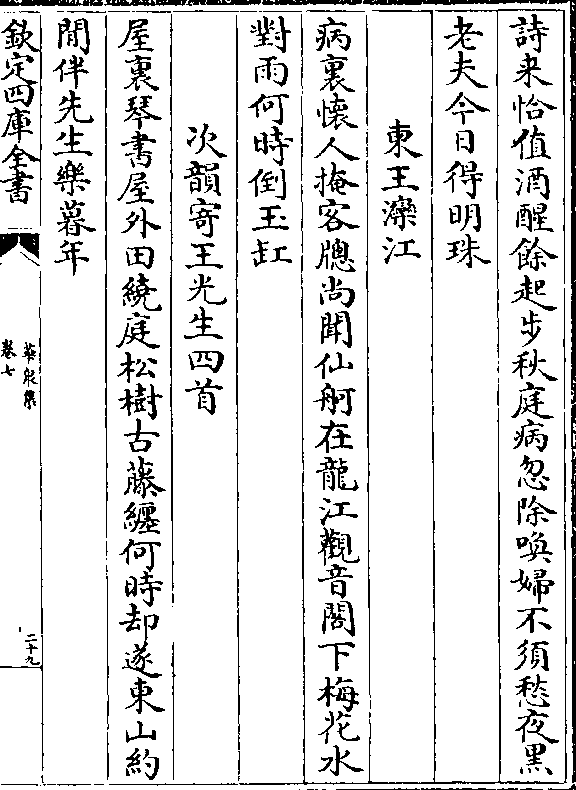 詩来恰值酒醒餘起步秋庭病忽除喚婦不須愁夜黒
老夫今日得明珠
東王灤江
病裏懐人掩客牎尚聞仙舸在龍江觀音閣下梅花水
對雨何時倒玉缸
次韻寄王光生四首
屋裏琴書屋外田繞庭松樹古藤纒何時却遂東山約
閒伴先生樂暮年
欽定四庫全書
卷七
二十九